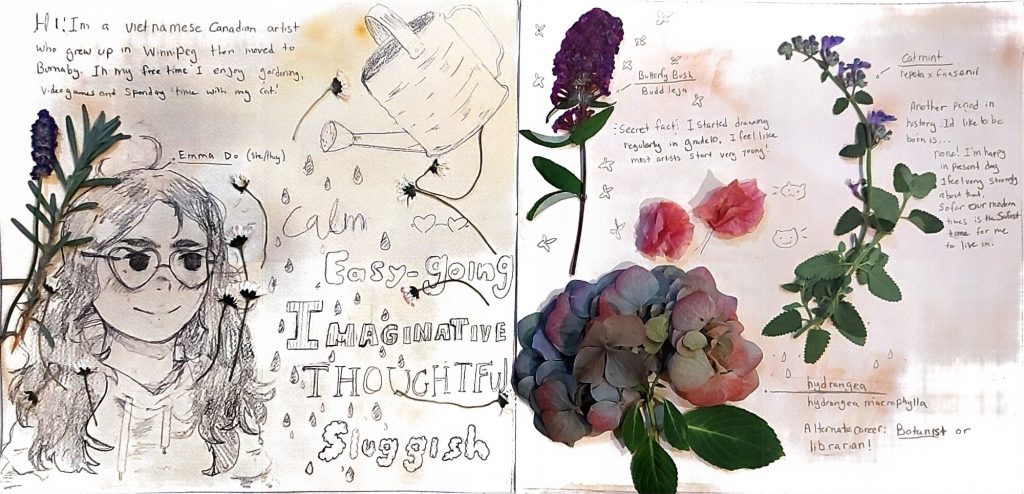 Hi! I'm a vietnamese Canadian artist
who grew up in Winnipeg then moved to
Burnaby. In my free time I enjoy gardening,
videogames and spending time with my cat!
Emma Do (she/they)
Calm
Easy-going
Imaginative
Thoughtful
Sluggish
Butterfly Bush
Buddleja
Secret fact: I started drawing
regularly in grade 10, I feel like
most artists start very young!
Catmint
nepeta x faassenii
Another period in
history I'd like to be
born is...
none! I'm happy
in present day
I feel very strongly
about that.
So far our modern
times is the safest
time for me
to live in.
hydrangea
hydrangea macrophylla
Alternate career: Botanist or
librarian!